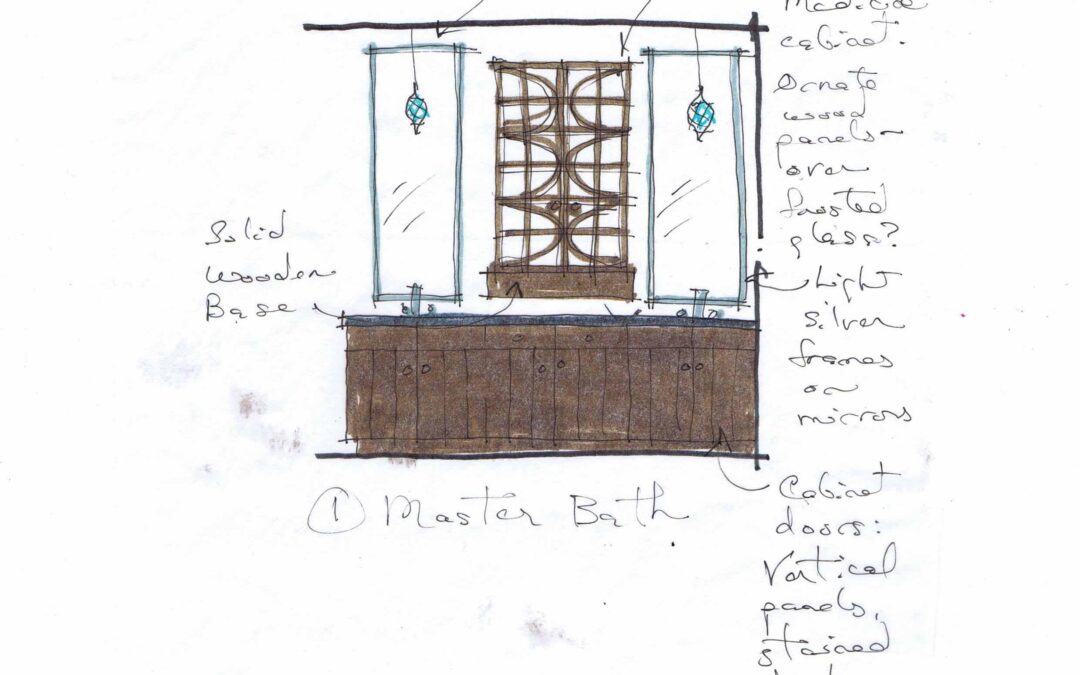 Medicine
cabinet.
Ornate
wood
panels-
over
frosted
glass?
Solid
wooden
Base
Light
silver
frames
on
mirrors
1 Master Bath
Cabinet
doors:
Vertical
panels,
stained